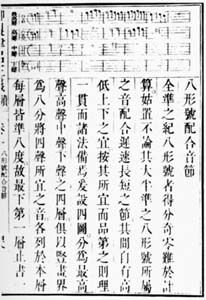 八形號配合音節
全準之紀八形號者得分奇零難於計
算姑置不論其大半準之八形號所屬
之音配合遲速長短之節其間自有高
低上下之宜按其所宜而品第之則理
一貫而諸法備焉爰設四圖分爲最高
聲高聲中聲下聲之四層俱以竪畫界
爲八分將四聲所宜之音各列於本層
每層皆準八度故最下第一層止書二
八形號配合音節